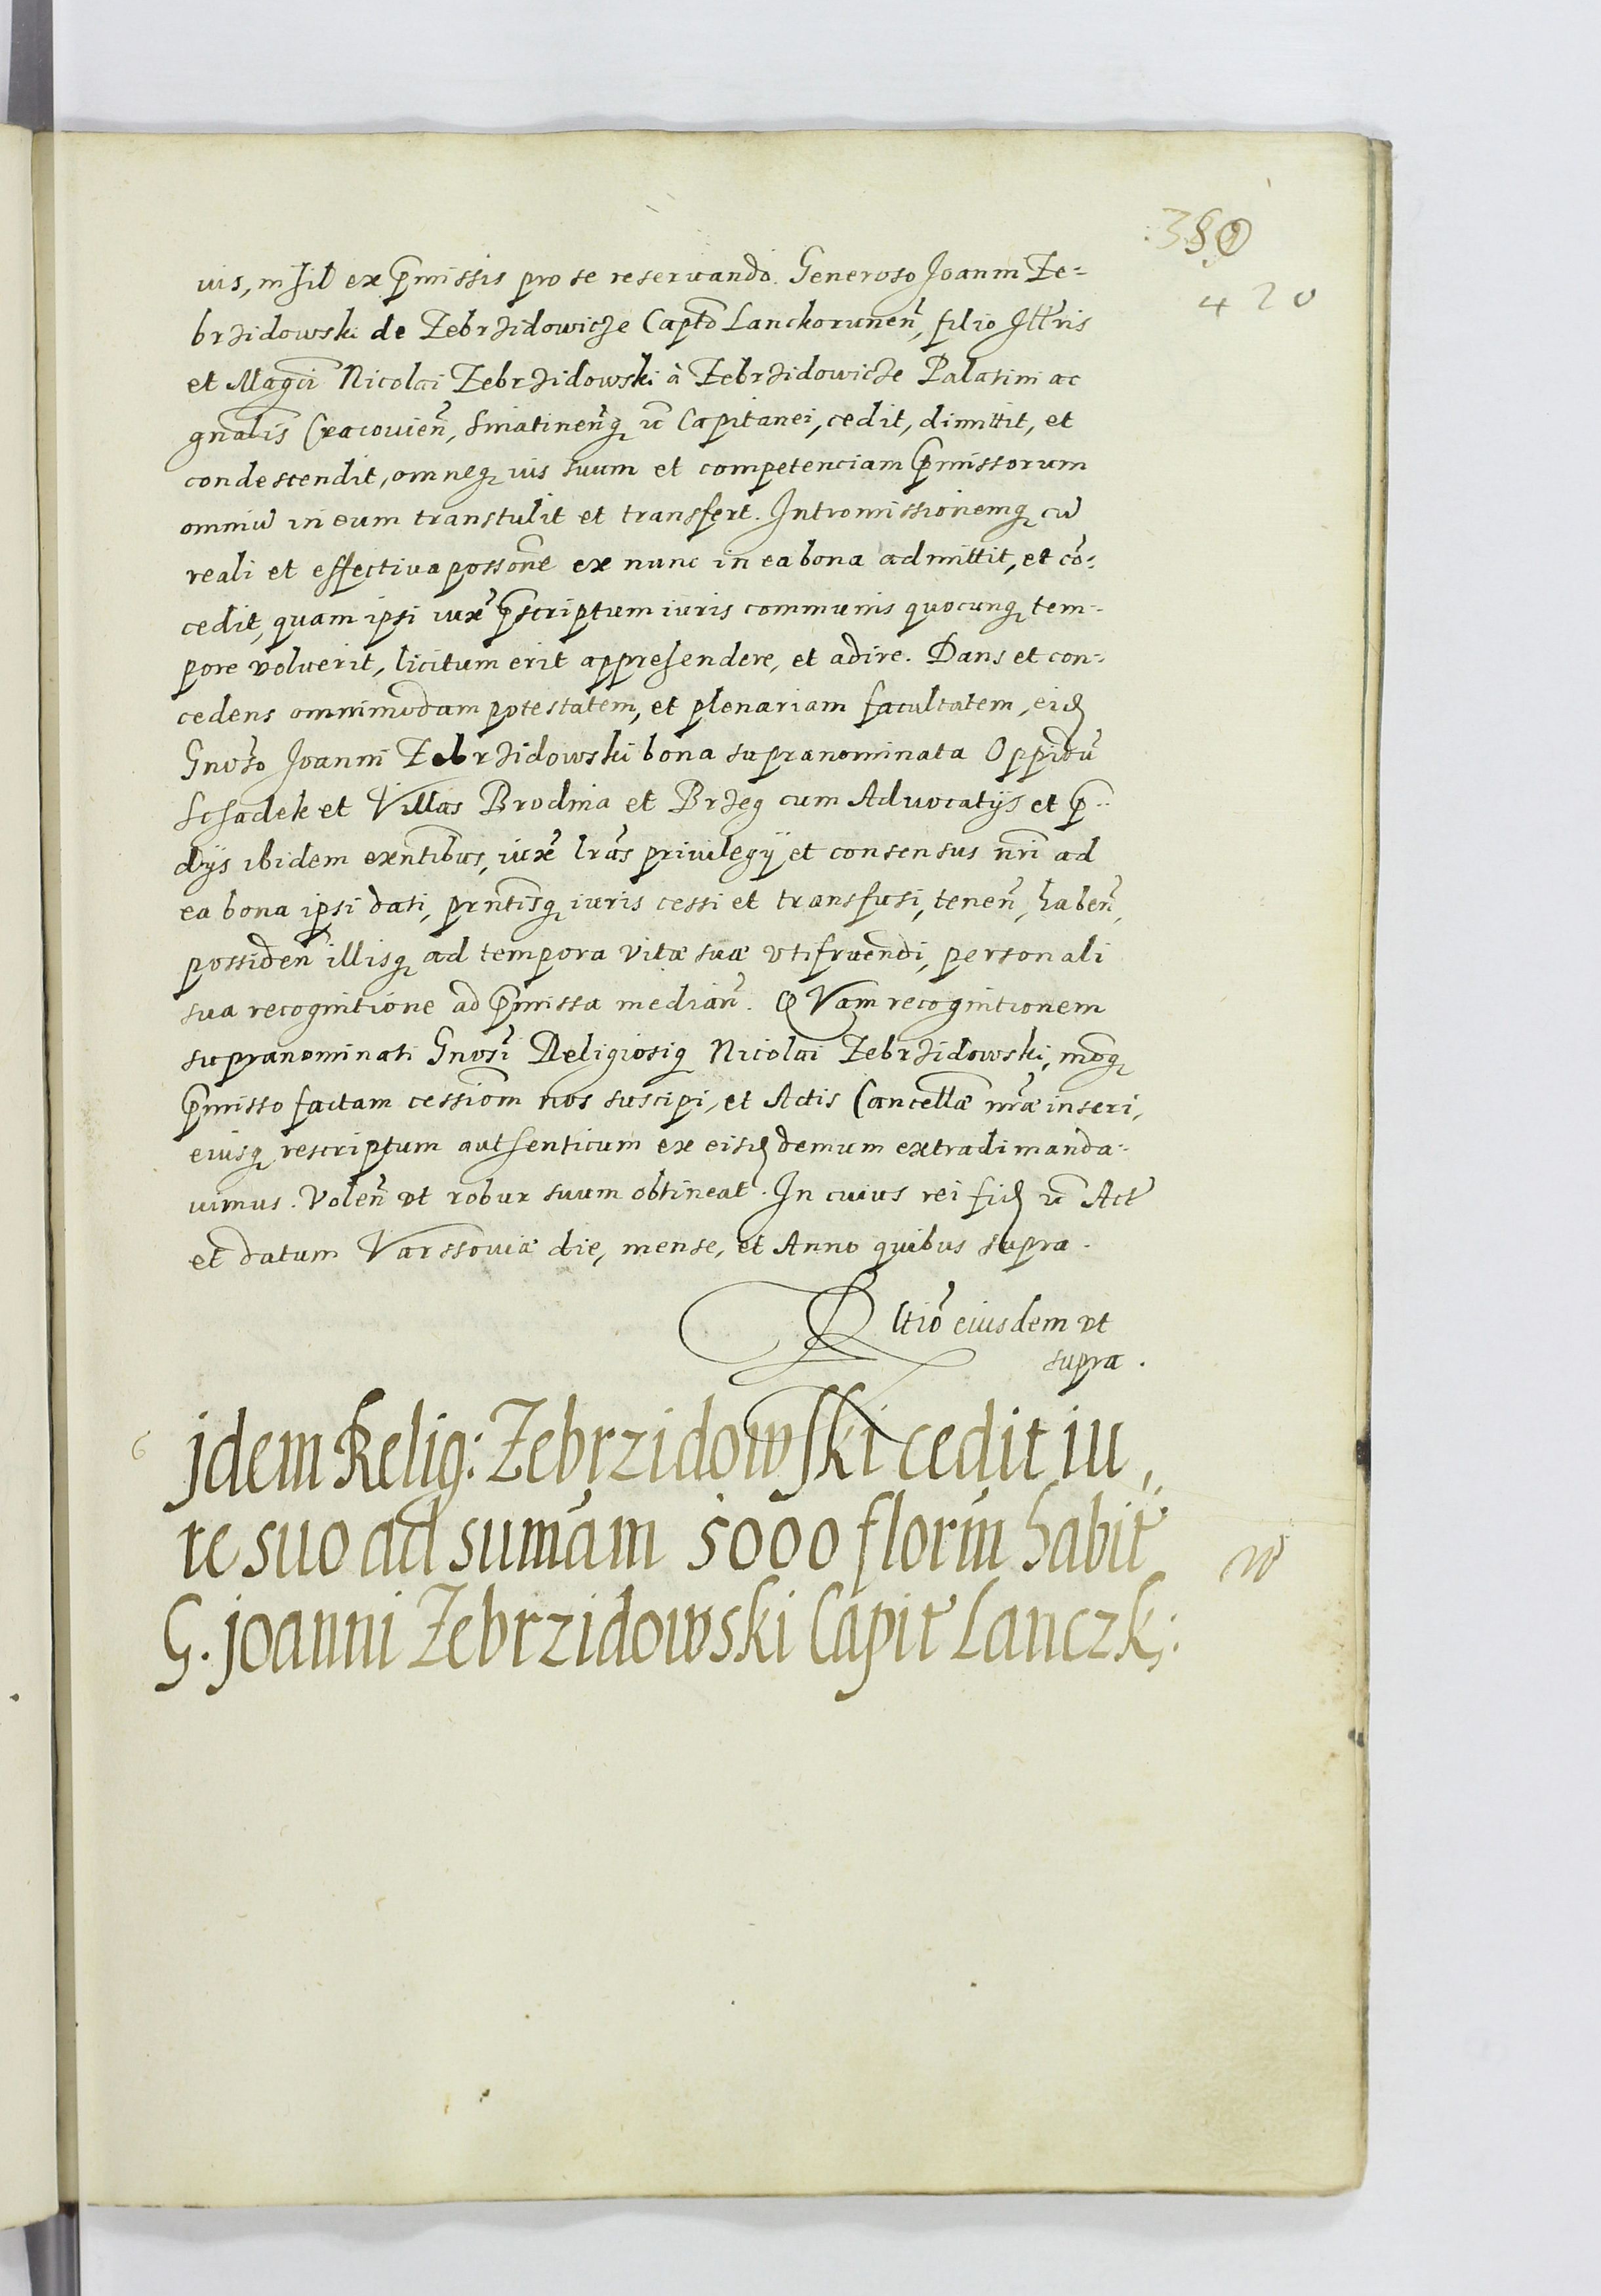 380
420
uis, nihil ex p̄missis pro se reseruando. Generoso Joanni Ze-
brzidowski de Zebrzidowicze Capto Lanckorunen̄, filio Illris
et Magci Nicolai Zebrzidowski à Zebrzidowicze Palatini ac
gnalis Cracouien̄, Sniatinen̄q₃ Capitanei, cedit, dimittit, et
condescendit, omneq₃ ius suum et competenciam p̄missorum
omniū in eum transtulit et transfert. Intromissionemq₃ cū
reali et effectiua possone ex nunc in ea bona admittit, et cō-
cedit, quam ipsi iux͂ p̄scriptum iuris communis quocunq₃ tem-
pore voluerit, licitum erit apprehendere, et adire. Dans et con-
cedens omnimodam potestatem, et plenariam facultatem, eid
Gnoso Joanni Zebrzidowski bona supranominata Oppidū
Schadek et Villas Brodnia et Brzeg cum Aduocatijs et p̄-
dijs ibidem exntibus, iux͂ lras priuilegÿ et consensus nri ad
ea bona ipsi dati, prntisq₃ iuris cessi et transfusi, tenen̄, haben̄,
possiden̄ illisq₃ ad tempora vitæ suæ vtifruendi, personali
sua recognitione ad p̄missa median̄. QVam recognitionem
supranominati Gnosi Religiosiq₃ Nicolai Zebrzidowski, moq₃
p̄misso factam cessiom nos suscipi, et Actis Cancellæ nræ inseri,
eiusq₃ rescriptum authenticum ex eisd demum extradi manda-
uimus. Volen̄ vt robur suum obtineat. In cuius rei fid Act
et datum Varssouiæ die, mense, et Anno quibus supra.
Rltio eiusdem vt
supra.
6 jdem Relig: Zebrzidowski cedit iu,,
re suo ad sumām 5000 florin̄ habit
G. joanni Zebrzidowski Capit Lanczk: